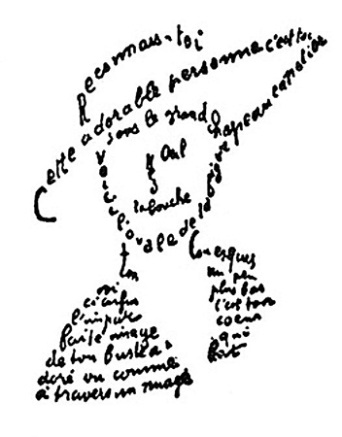 Reconnais-toi
Cette adorable personne c'est toi
Sous le grand chapeau canotier
Œil
la bouche
Voici l'ovale de ta figure
ton
cou exquis
oi
ci enfin
l'impar
faite image
de ton buste a
doré vu comme
à travers un nuage
un peu
plus bas
c'est ton
coeur
qui
bat